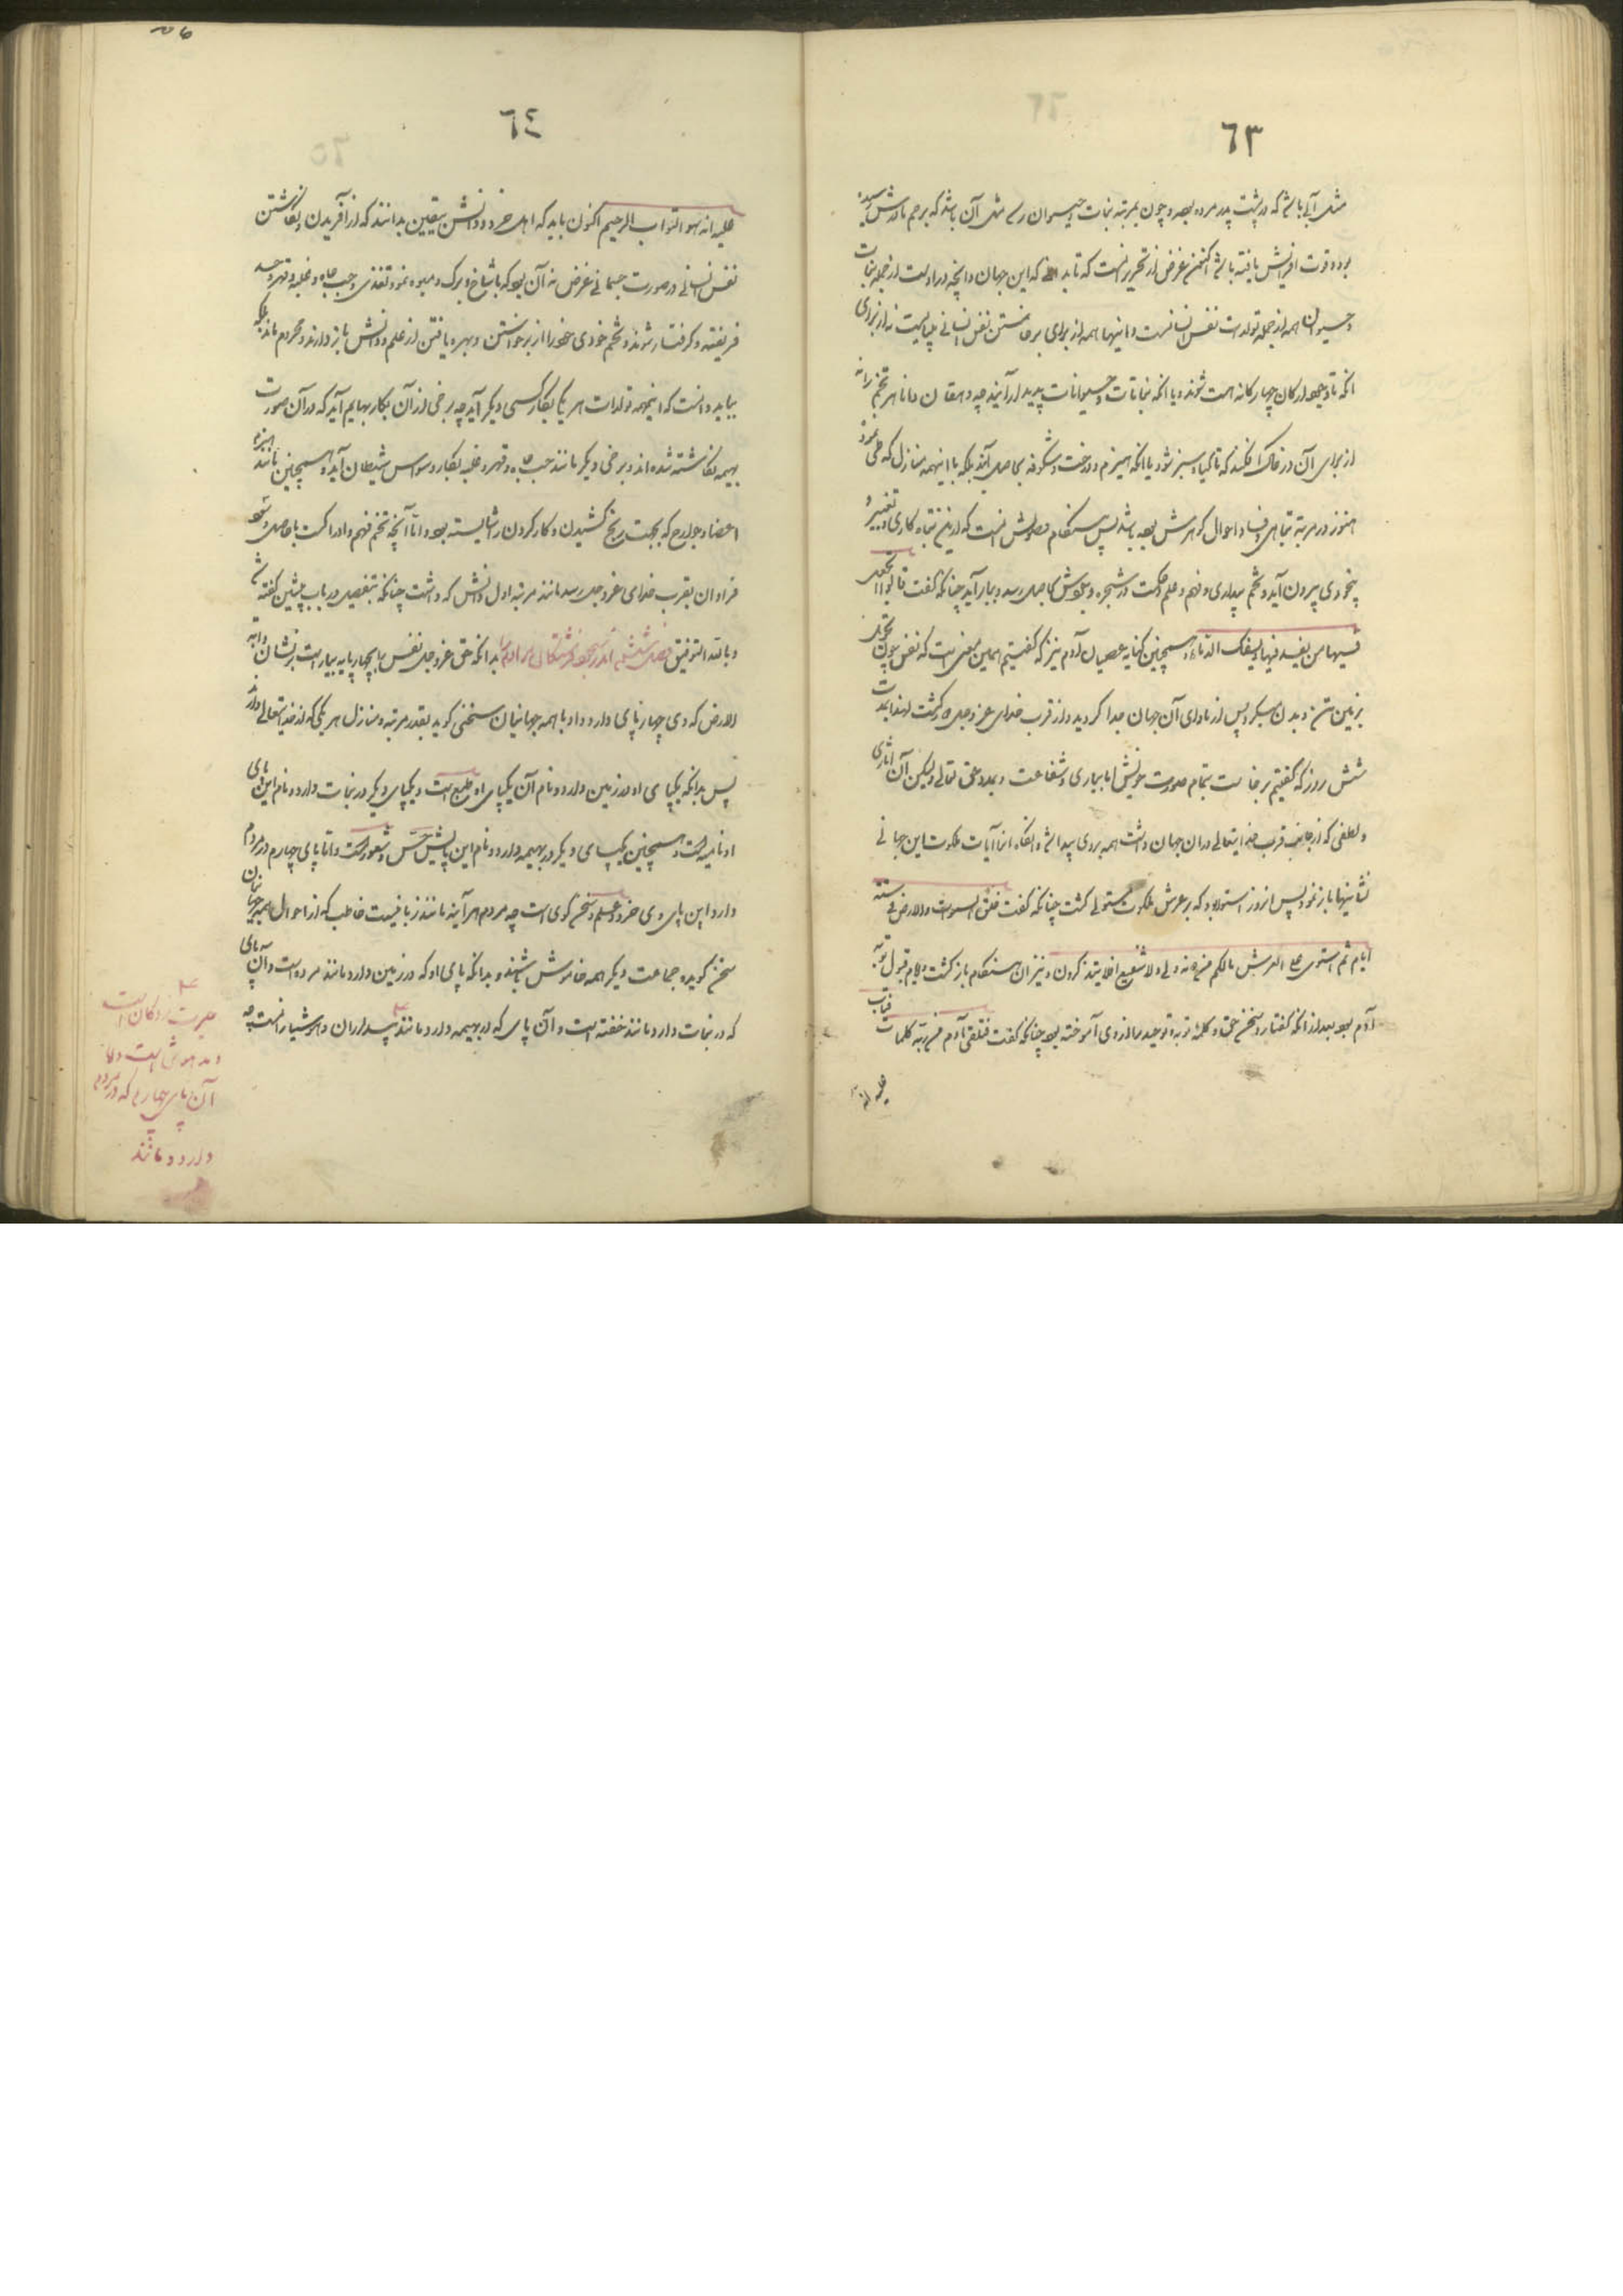 ٦٣
مثل آبی باشد که در پشت پدر مرده بود و چون بمرتبه نبات و حیوان رسد مثل آن باشد که برحم مادرش رسیده
بوده قوت افزایش یافته باشد اکنون غرض از تحریر آنست که تا بدانند که این جهان و آنچه در اوست از جمله نبات
و حیوان همه از جمله تولدات نفس انسانیست و اینها همه از برای برخاستن نفس انسانی بپایست نه از برای
آنکه تا وجود ارکان چهارگانه هست شوند و یا آنکه نباتات و حیوانات پدیدار آیند چه دهقان دانا هر تخم را نه
از برای آن در خاک افکند که تا گیاه سبز شود یا آنکه هیزم و درخت و شکوفه بحاصل آید بلکه با اینهمه منازل که طی نمود
هنوز در مرتبه تباهی و فساد احوال گوهرش بوده باشد پس هنگام وصولش آنست که از این تباه کاری و تغییر و
بیخودی بیرون آید و تخم بیداری و فهم و علم و حکمت در شجره وجودش بحاصل رسد و ببار آید چنانکه گفت قالوا اتجعل
فیها من یفسد فیها و یسفک الدماء و همچنین کنایه عصیان آدم نیز که گفتیم همین معنی است که نفس چون تحویل
بزمین تن و بدن سبکر و پس از ماوای آن جهان جدا گردید و از قرب خدای عز وجل در گذشت لهذا بمدت
شش روز که گفتیم برخاست بتمام صورت خویش اما بیاری و شفاعت و بمدد حق تعالی و لیکن آن آثاری
و لطفی که از جانب قرب خدایتعالی در آن جهان داشت همه بروی پیدا شد و آنگاه آنرا آیات ملکوت این جهانی
نشانیها باز نمود پس از روز استوا بود که بر عرش ملکوت مستولی گشت چنانکه گفت خلق السموات والارض فی ستته
ایام ثم استوی علی العرش مالکم من دونه ولی ولا شفیع افلا یتذکرون و نیز آن هنگام بازگشت و ایام قبول توبه
آدم بود بعد از آنکه گفتار و سخن حق و کلمه توبه و توحید را از وی آموخته بود چنانکه گفت فتلقی آدم من ربه کلمات فتاب
علیه انه
٦٤
علیه انه هو التواب الرحیم اکنون باید که اهل خرد و دانش بیقین بدانند که از آفریدن و نگاشتن
نفس انسانی در صورت جسمانی غرض نه آن بود که با شاخ و برگ و میوه نمو و تغذی و حب جاه و غلبه و قهر و حسد
فریفته و گرفتار شوند و تخم خودی خود را از برخواستن و بهره یافتن از علم و دانش باز دارند و محروم مانند بلکه
بباید دانست که اینهمه تولدات هر یک بکار کسی دیگر آید چه برخی از آن بکار بهایم آید که در آن صورت
بهیمه نگاشته شده اند و برخی دیگر مانند حب جاه و قهر و غلبه بکار وسواس شیطان آید و همچنین مانند اینهمه
اعضا و جوارح که بجهت رنج کشیدن و کار کردن را شایسته بود و اما آنچه تخم فهم و ادراکست با حاصل و نمو
فراوان بقرب خدای عز وجل رسد مانند مرتبه اول دانش که داشت چنانکه بتفصیل در باب پیشین گفته شد
و بالله التوفیق فصل ششم اندر سجود فرشتگان مر آدم را بدانکه حق عز وجل نفس را بچهار پایه بیاراست بر نشان دابه
الارض که وی چهار پای دارد و او با همه جهانیان سخنی گوید بقدر مرتبه و منازل هر یکی که از خدایتعالی دارند
پس بدانکه یکپای او در زمین دارد و نام آن یکپای او طبع است و یکپای دیگر در نبات دارد و نام این پای
او نامیه است و همچنین یکپای دیگر در بهیمه دارد و نام این پایش حس و شعور است و اما پای چهارم در مردم
دارد و این پای وی خرد و علم و سخن گوی است چه مردم هر آینه مانند زبانیست خاطب که از احوال همه جهانیان
سخن گوید و جماعت دیگر همه خاموش باشند و بدانکه پای او که در زمین دارد مانند مرده است و آن پای
که در نبات دارد مانند خفته است و آن پای که در بهیمه دارد مانند بیداران و هوشیار است چه
است
و مدهوش است و اما
آن پای چهارم که در مردم
دارد مانند